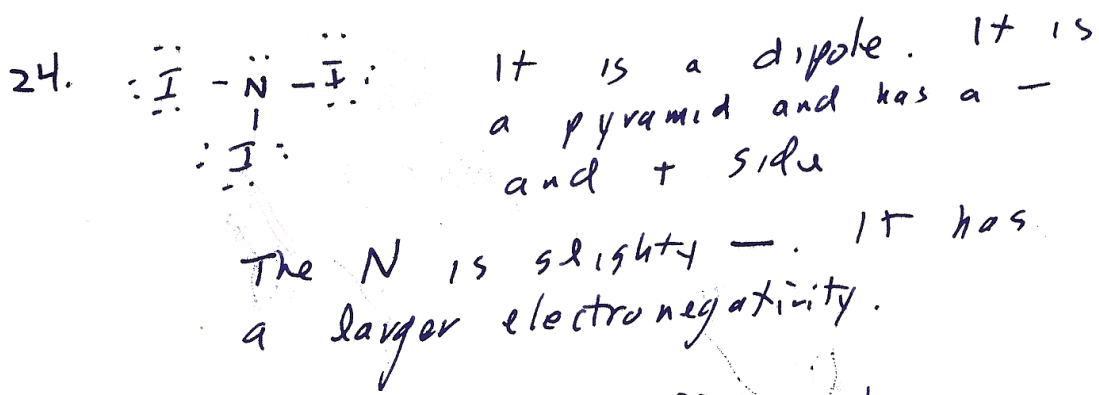 24. :I - N - I: It is a dipole. It is
a pyramid and has a -
I
: I : and + side
The N is slighty -. It has
a larger electronegativity.